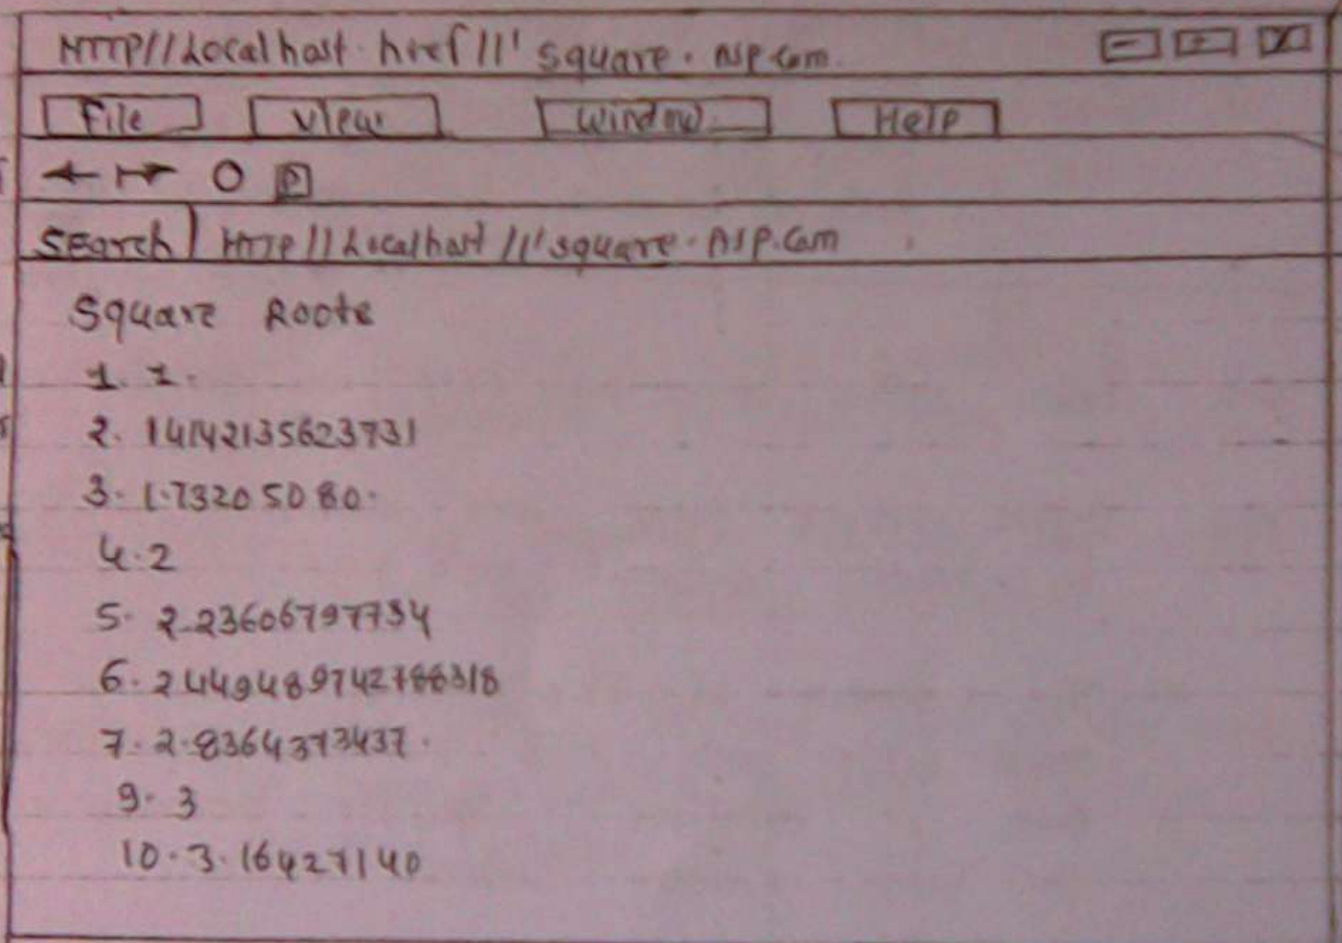 HTTP//Localhost.href//'square.asp.com.
File View Window Help
Search HTTP//Localhost//'square.Asp.com
Square Roote
1. 1.
2. 14142135623731
3. 1.73205080.
4.2
5. 2.23606797734
6. 2449489742788318
7. 2.8364373437.
9. 3
10.3.16427140